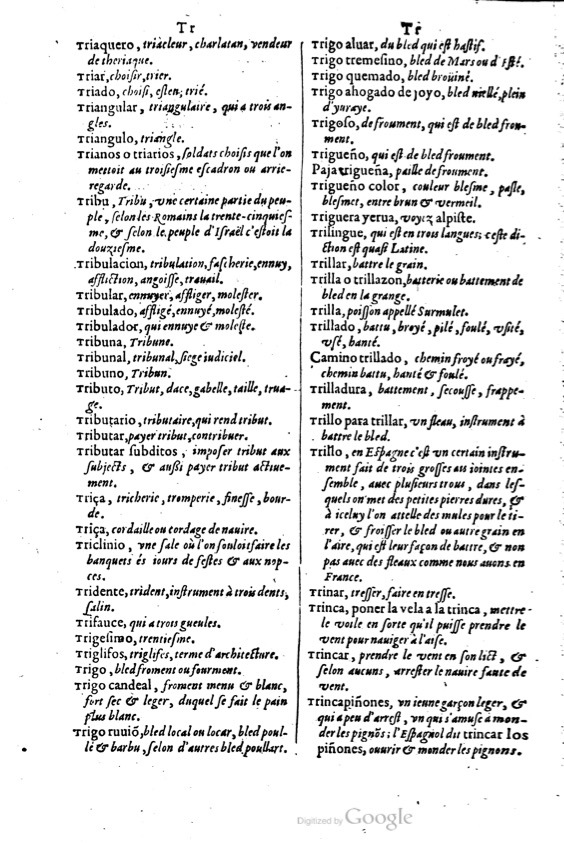 Tr
Triaquero, triacleur, charlatan, vendeur
de theriaque.
Triar, choisir, trier.
Triado, choisi, esleu, trié.
Triangular, triangulaire, qui a trois an-
gles.
Triangulo, triangle.
Trianos o triarios, soldats choisis que l'on
mettoit au troisiesme escadron ou arrie-
regarde.
Tribu, Tribu, vne certaine partie du peu-
ple, selon les Romains la trente-cinquies-
me, & selon le peuple d'Israël c'estoit la
douziesme.
Tribulacion, tribulation, fascherie, ennuy,
affliction, angoisse, trauail.
Tribular, ennuyer, affliger, molester.
Tribulado, affligé, ennuyé, molesté.
Tribulador, qui ennuye & moleste.
Tribuna, Tribune.
Tribunal, tribunal, siege iudiciel.
Tribuno, Tribun.
Tributo, Tribut, dace, gabelle, taille, trua-
ge.
Tributario, tributaire, qui rend tribut.
Tributar, payer tribut, contribuer.
Tributar subditos, imposer tribut aux
subjects, & aussi payer tribut actiue-
ment.
Triça, tricherie, tromperie, finesse, bour-
de.
Triça, cordaille ou cordage de nauire.
Triclinio, vne sale où l'on souloit faire les
banquets és iours de festes & aux nop-
ces.
Tridente, trident, instrument à trois dents,
salin.
Trifauce, qui a trois gueules.
Trigesimo, trentiesme.
Triglifos, triglifes, terme d'architecture.
Trigo, bled froment ou fourment.
Trigo candeal, froment menu & blanc,
fort sec & leger, duquel se fait le pain
plus blanc.
Trigo ruuió, bled local ou locar, bled poul-
lé & barbu, selon d'autres bled poullart.
Tr
Trigo aluar, du bled qui est hastif.
Trigo tremesino, bled de Mars ou d'Esté.
Trigo quemado, bled brouiné.
Trigo ahogado de joyo, bled niellé, plein
d'yuraye.
Trigoso, de froument, qui est de bled frou-
ment.
Trigueño, qui est de bled froument.
Paja trigueña, paille de froument.
Trigueño color, couleur blesme, pasle,
blesmet, entre brun & vermeil.
Triguera yerua, voyez alpiste.
Trilingue, qui est en trois langues; ceste di-
ction est quasi Latine.
Trillar, battre le grain.
Trilla o trillazon, batterie ou battement de
bled en la grange.
Trilla, poisson appellé Surmulet.
Trillado, battu, broyé, pilé, foulé, vsité,
vsé, hanté.
Camino trillado, chemin froyé ou frayé,
chemin battu, hanté & foulé.
Trilladura, battement, secousse, frappe-
ment.
Trillo para trillar, vn fleau, instrument à
battre le bled.
Trillo, en Espagne c'est vn certain instru-
ment fait de trois grosses ais iointes en-
semble, auec plusieurs trous, dans les-
quels on met des petites pierres dures, &
à iceluy l'on attelle des mules pour le ti-
rer, & froisser le bled ou autre grain en
l'aire, qui est leur façon de battre, & non
pas auec des fleaux comme nous auons en
France.
Trinar, tresser, faire en tresse.
Trinca, poner la vela a la trinca, mettre
le voile en sorte qu'il puisse prendre le
vent pour nauiger à l'aise.
Trincar, prendre le vent en son lict, &
selon aucuns, arrester le nauire faute de
vent.
Trincapiñones, vn ieune garçon leger, &
qui a peu d'arrest, vn qui s'amuse à mon-
der les pignós; l'Espagnol dit trincar los
piñones, ouurir & monder les pignons.
Digitized by Google